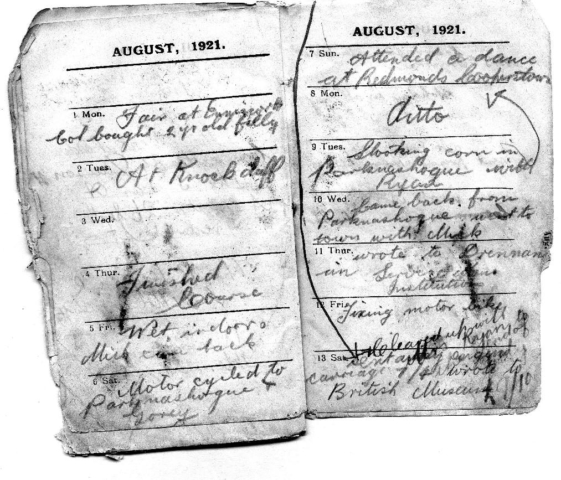 AUGUST, 1921.
1 Mon. Fair at
bought 2 yr old filly
2 Tues. At Knockduff
3 Wed.
4 Thur. Finished
Course
5 Fri. Wet indoors
Mick came back
6 Sat. Motor cycled to
Parknashogue &
Gorey
AUGUST, 1921.
7 Sun. Attended a dance
at Redmonds Cooperstown
8 Mon.
Ditto
9 Tues. Stooking corn in
Parknashogue with
Ryan
10 Wed. Came back from
Parknashogue went to
town with Mick
11 Thur. wrote to Brennan
in
Institution
12 Fri. Fixing motor bike
13 Sat.
carriage wrote to
British Museum